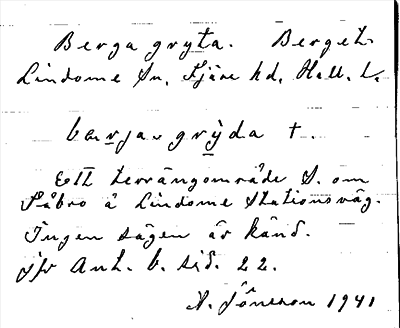 Berga gryta. Berget.
Lindome Sn, Fjäre hd, Hall. L.
bærja- grỳda +.
Ett terrängområde S. om
Fåbro å Lindome Stationsväg.
Ingen sägen är känd.
jfr Ant. b. sid. 22.
A. Jönsson 1941